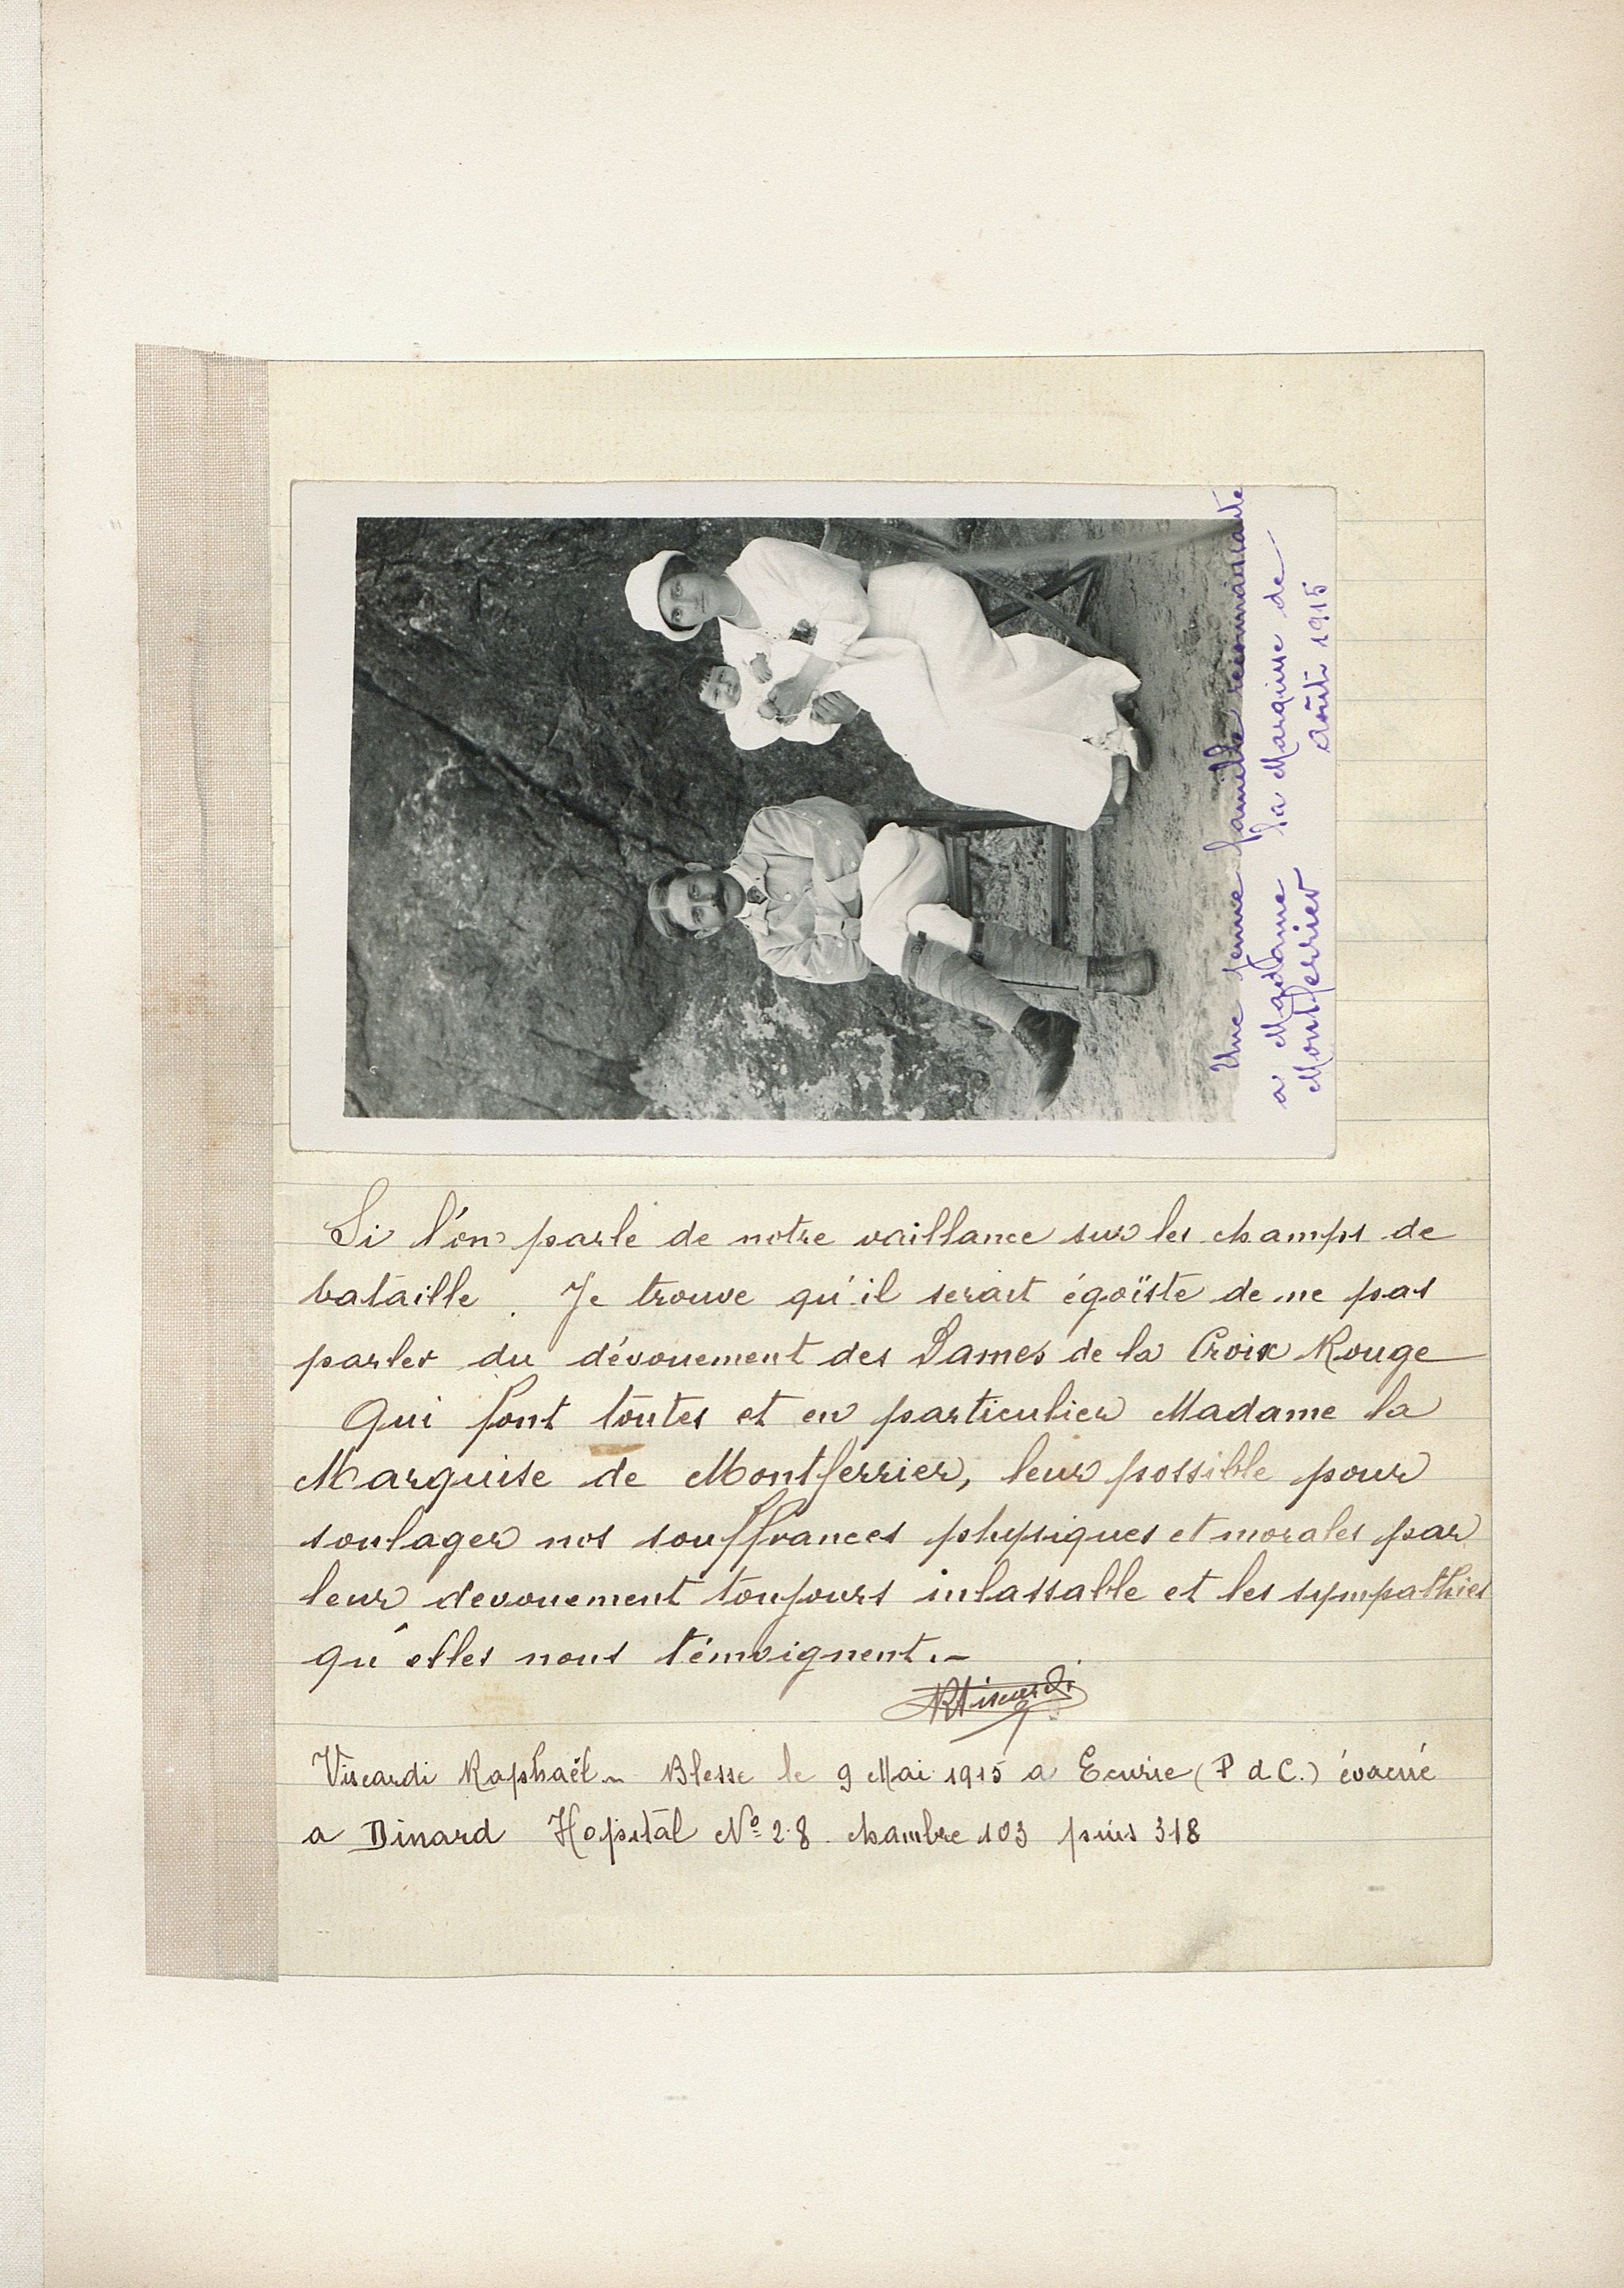 Une jeune famille reconnaissante
a Madame la Marquise de
Montferrier Août 1915
Si l'on parle de notre vaillance sur les champs de
bataille. Je trouve qu'il serait égoïste de ne pas
parler du dévouement des Dames de la Croix Rouge
Qui font toutes et en particulier Madame la
Marquise de Montferrier, leur possible pour
soulager nos souffrances physiques et morales par
leur devouement toujours inlassable et les sympathies
qu'elles nous témoignent.-
RViscardi
Viscardi Raphaël - Blesse le 9 Mai 1915 a Ecurie (P d C.) évacué
a Dinard Hopital Nº 28 chambre 103 puis 318